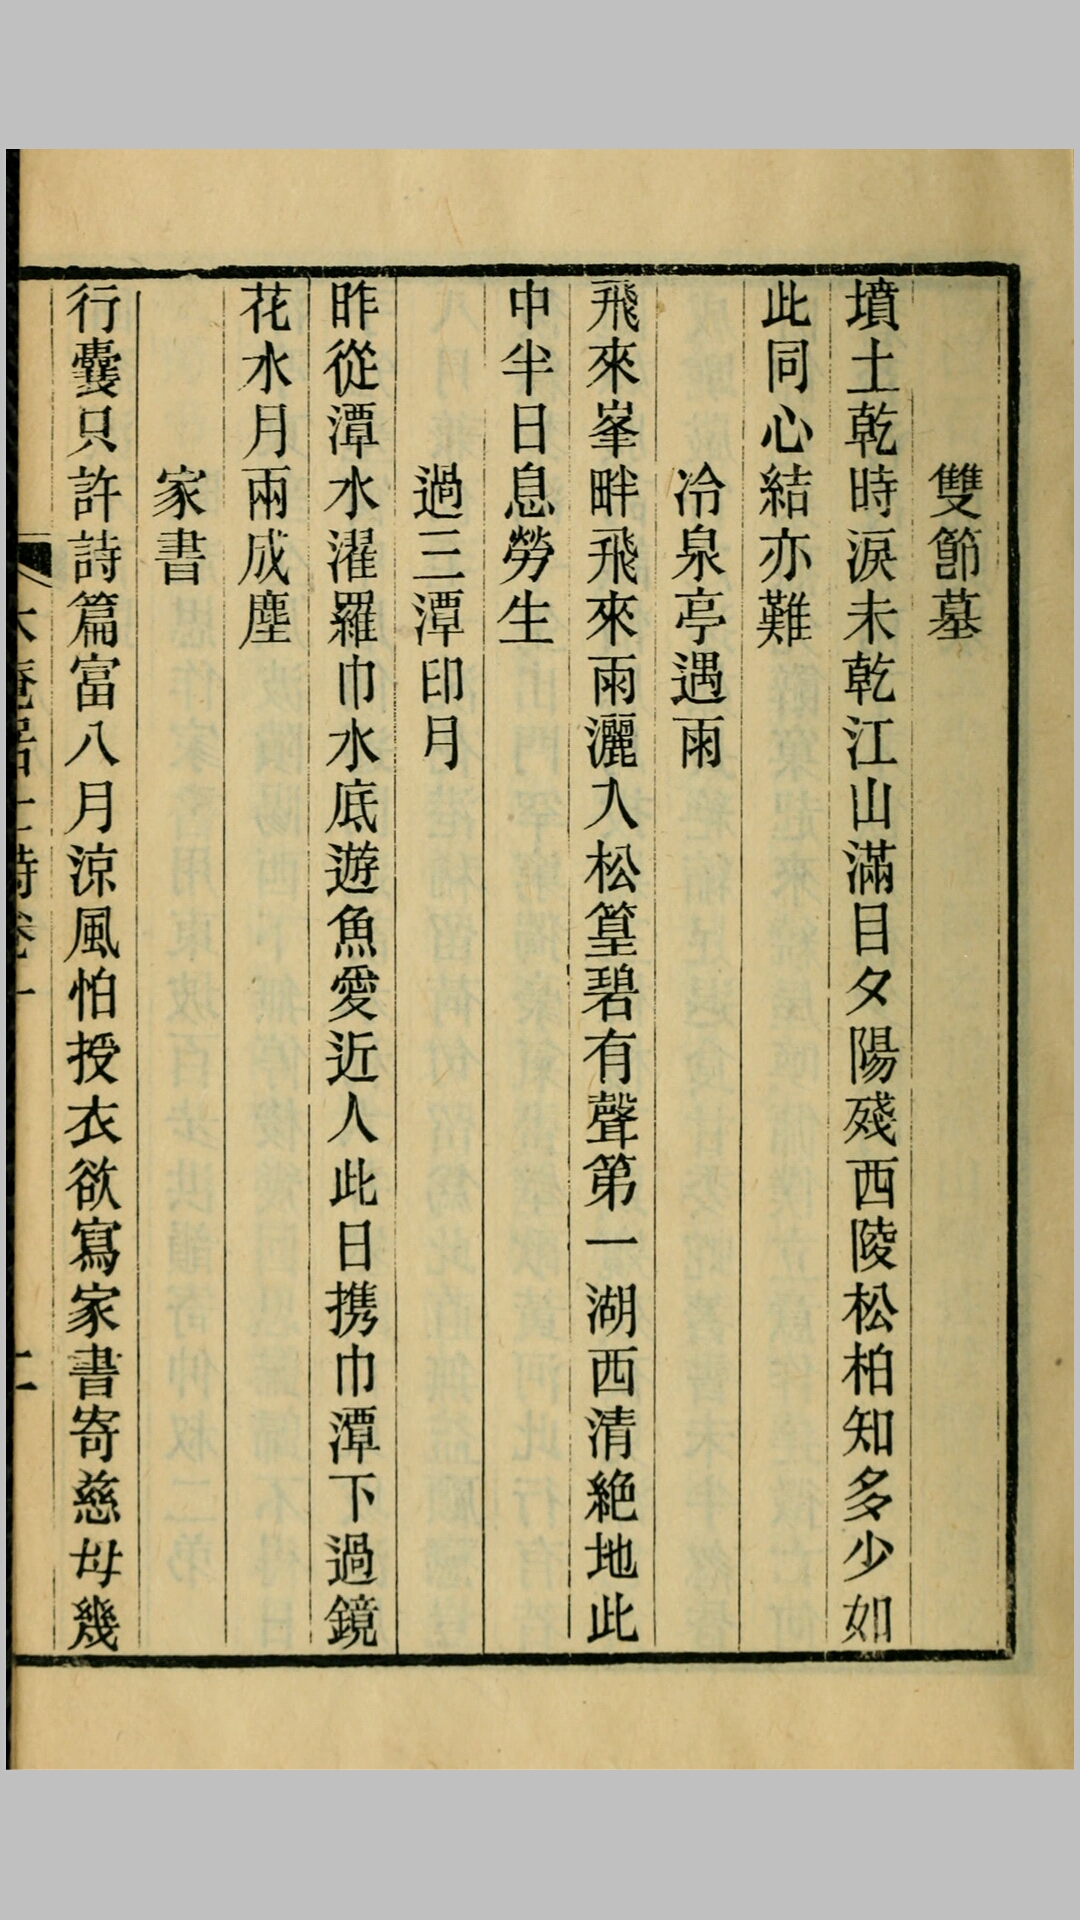 雙節墓
墳土乾時淚未乾江山滿目夕陽殘西陵松柏知多少如
此同心結亦難
冷泉亭遇雨
飛來峯畔飛來雨灑入松篁碧有聲第一湖西清絶地此
中半日息勞生
過三潭印月
昨從潭水濯羅巾水底遊魚愛近人此日携巾潭下過鏡
花水月兩成塵
家書
行囊只許詩篇富八月涼風怕授衣欲寫家書寄慈母幾